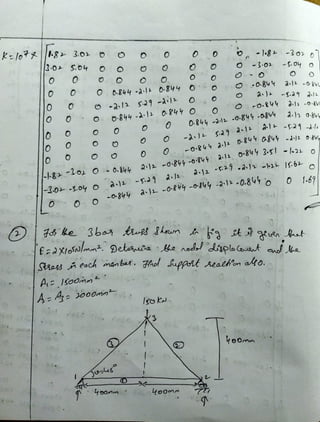 K=10⁷ x
1.82 3.02 0 0 0 0 0 0 0 -1.82 -3.02 0
3.02 5.04 0 0 0 0 0 0 0 -3.02 -5.04 0
0 0 0 0 0 0 0 0 0 0 0
0 0 0 0.844 -2.12 0.844 0 0 0 -0.844 2.12
0 0 0 -2.12 5.29 -2.12 0 0 0 2.12 -5.29 2.12
0 0 0 0.844 -2.12 0.844 0 0 0 -0.844 2.12
0 0 0 0 0 0 0.844 -2.12 -0.844 -0.844 2.12
0 0 0 0 0 0 -2.12 5.29 2.12 2.12 -5.29
0 0 0 0 0 0 -0.844 2.12 0.844 0.844 -2.12
-1.82 -3.02 0 -0.844 2.12 -0.844 -0.844 2.12 0.844 3.51 0
-3.02 -5.04 0 2.12 -5.29 2.12 2.12 -5.29 -2.12 15.62 0
0 0 0 -0.844 2.12 -0.844 -0.844 2.12 -0.844 0 0 1.69
② For the 3 bar truss shown in fig it is given that
E = 2x10⁵N/mm². Determine the nodal displacement and the
Stress in each member. Find support reaction also.
A₁ = 1500mm²
A₂ = A₃ = 2000mm²
150KN
3
③ ②
400mm
1 ① 2
400mm 400mm